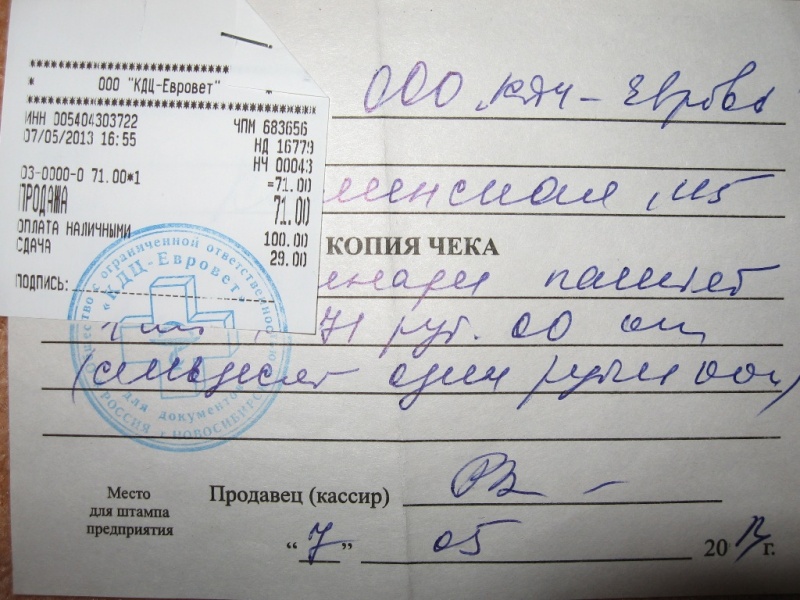 ООО "КДЦ-Евровет"
ИНН 005404303722 ЧПМ 683656
07/05/2013 16:55 НД 16779
НЧ 00043
03-0000-0 71.00*1 =71.00
ПРОДАЖА 71.00
ОПЛАТА НАЛИЧНЫМИ 100.00
СДАЧА 29.00
ПОДПИСЬ:
ООО "КДЦ-Еврове
КОПИЯ ЧЕКА
паштет
1 шт 71 руб. 00 коп
(семьдесят один рубль 00к)
с ограниченной ответственностью
"КДЦ-Евровет"
для документов
РОССИЯ г. НОВОСИБИРСК
Место
для штампа
предприятия
Продавец (кассир)
"7" 05 2013 г.